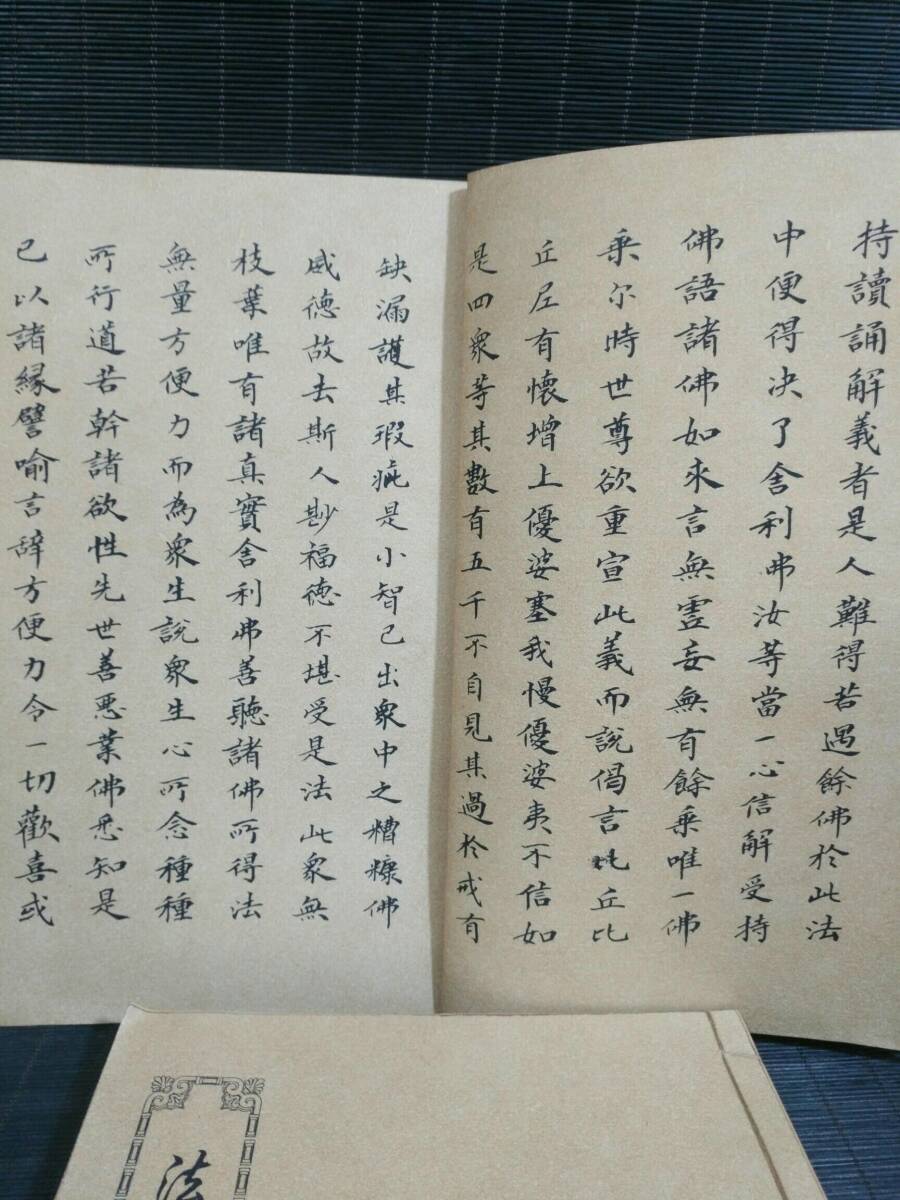 持讀誦解義者是人難得若遇餘佛於此法
中便得决了舍利弗汝等當一心信解受持
佛語諸佛如來言無虛妄無有餘乘唯一佛
乘尔時世尊欲重宣此義而說偈言比丘比
丘尼有懷增上優婆塞我慢優婆夷不信如
是四衆等其數有五千不自見其過於戒有
缺漏護其瑕疵是小智已出衆中之糟糠佛
威德故去斯人尠福德不堪受是法此衆無
枝葉唯有諸真實舍利弗善聽諸佛所得法
無量方便力而為衆生說衆生心所念種種
所行道若幹諸欲性先世善惡業佛悉知是
已以諸緣譬喻言辭方便力令一切歡喜或
法